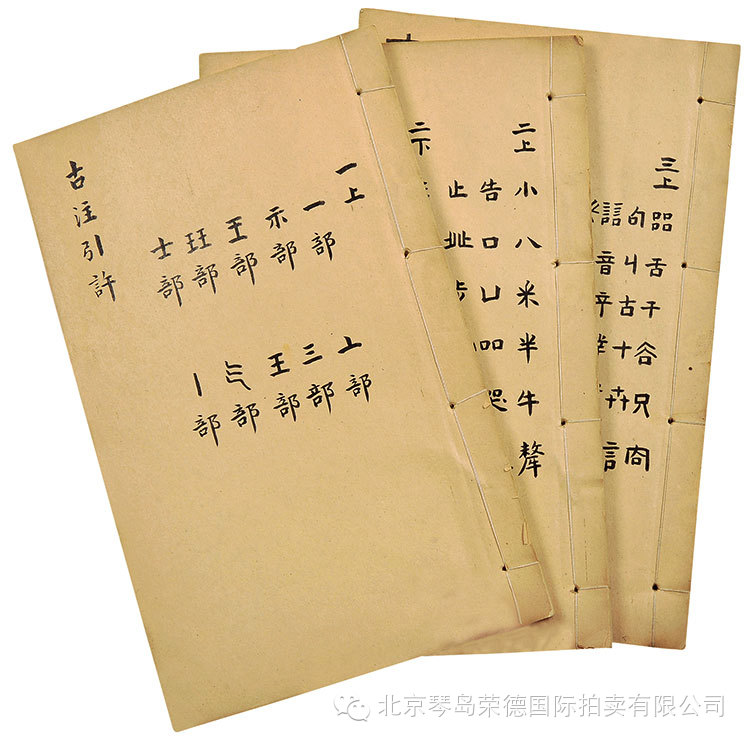 一上
一部 上部
示部 三部
王部 王部
玨部 气部
士部 丨部
古注引許
二上
小八釆半牛犛
告口凵吅哭
止癶步
二下
三上
㗊舌干谷只㕯
句丩古十卅言
誩音䇂丵
北京琴岛荣德国际拍卖有限公司